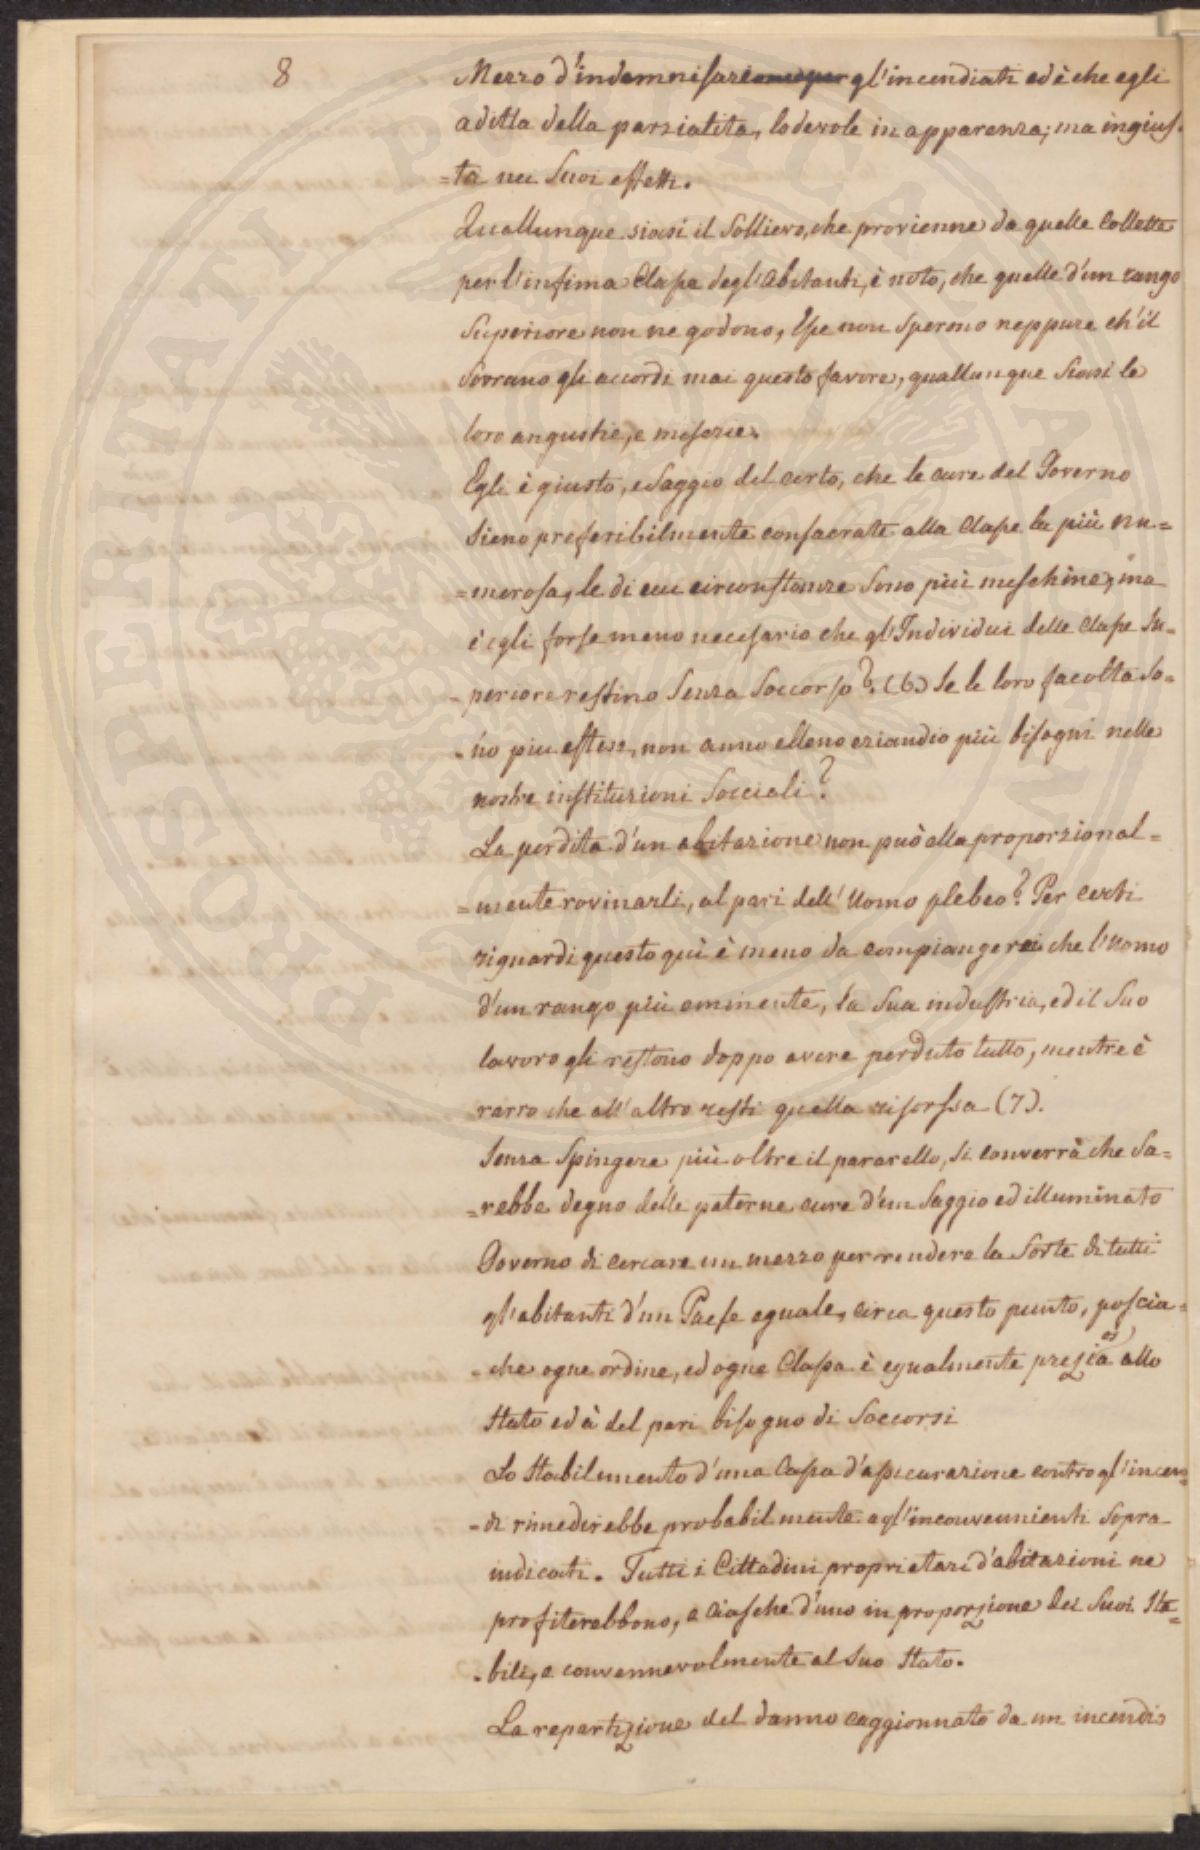 8
Mezzo d'indemnisare gl'incendiati ed è che egli
aditta della parzialita, lodevole in apparenza; ma ingius-
=ta nei Suoi effetti.
Quallunque siasi il Sollievo, che provienne da quelle Collette
per l'infima Classe degl'abitanti, è noto, che quelle d'un rango
Superiore non ne godono, Esse non Sperano neppure ch'il
Sovrano gli accordi mai questo favore, quallunque Siasi le
loro angustie, e miserie.
Egli è giusto, e Saggio del certo, che le cure del Governo
Sieno preferibilmente consacrate alla Classe la più nu=
=merosa, le di cui circonstanze Sono più meschine, ma
è egli forse meno necessario che gl'Individui delle Classe Su=
=periore restino Senza Soccorso? (6) Se le loro facolta So=
=no piu estese, non anno elleno eziandio più bisogni nelle
nostre instituzioni Socciali?
La perdita d'un abitazione non può ella proporzional=
=mente rovinarli, al pari dell'Uomo plebeo? Per certi
riguardi questo quì è meno da compiangere che l'Uomo
d'un rango più eminente, la Sua industria, ed il Suo
lavoro gli restono doppo avere perduto tutto, mentre è
rarro che all'altro resti quella risorssa (7).
Senza Spingere più oltre il pararello, Si converrà che Sa=
=rebbe degno delle paterne cure d'un Saggio ed illuminato
Governo di cercare un mezzo per rendere la Sorte di tutti
gl'abitanti d'un Paese eguale, circa questo punto, poscia=
=che ogne ordine, ed ogne Classa è egualmente prezioa allo
Stato ed à del pari bisogno di Soccorsi
Lo Stabilimento d'una Cassa d'assicurazione contro gl'incen=
=di rimedirebbe probabilmente agl'inconvennienti Sopra
indicati. Tutti i Cittadini proprietari d'abitazioni ne
profiterebbono, e ciasche d'uno in proporzione dei Suoi Sta=
=bili, e convennevolmente al Suo Stato.
La repartizione del danno caggionnato da un incendio